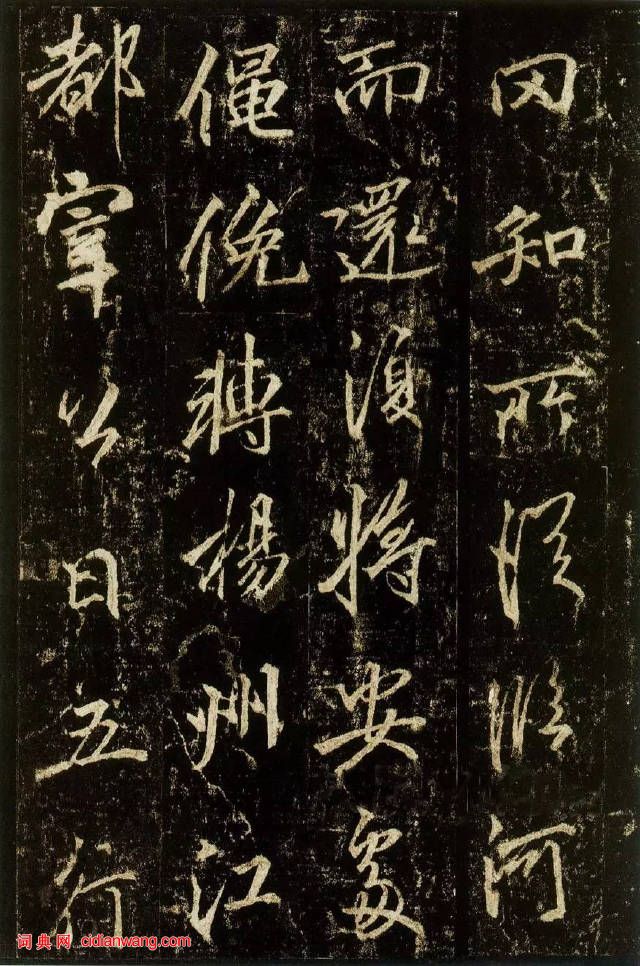 罔知所從臨河
而還復將安處
僶俛轉楊州江
都宰公曰五行
词典网 cidianwang.com